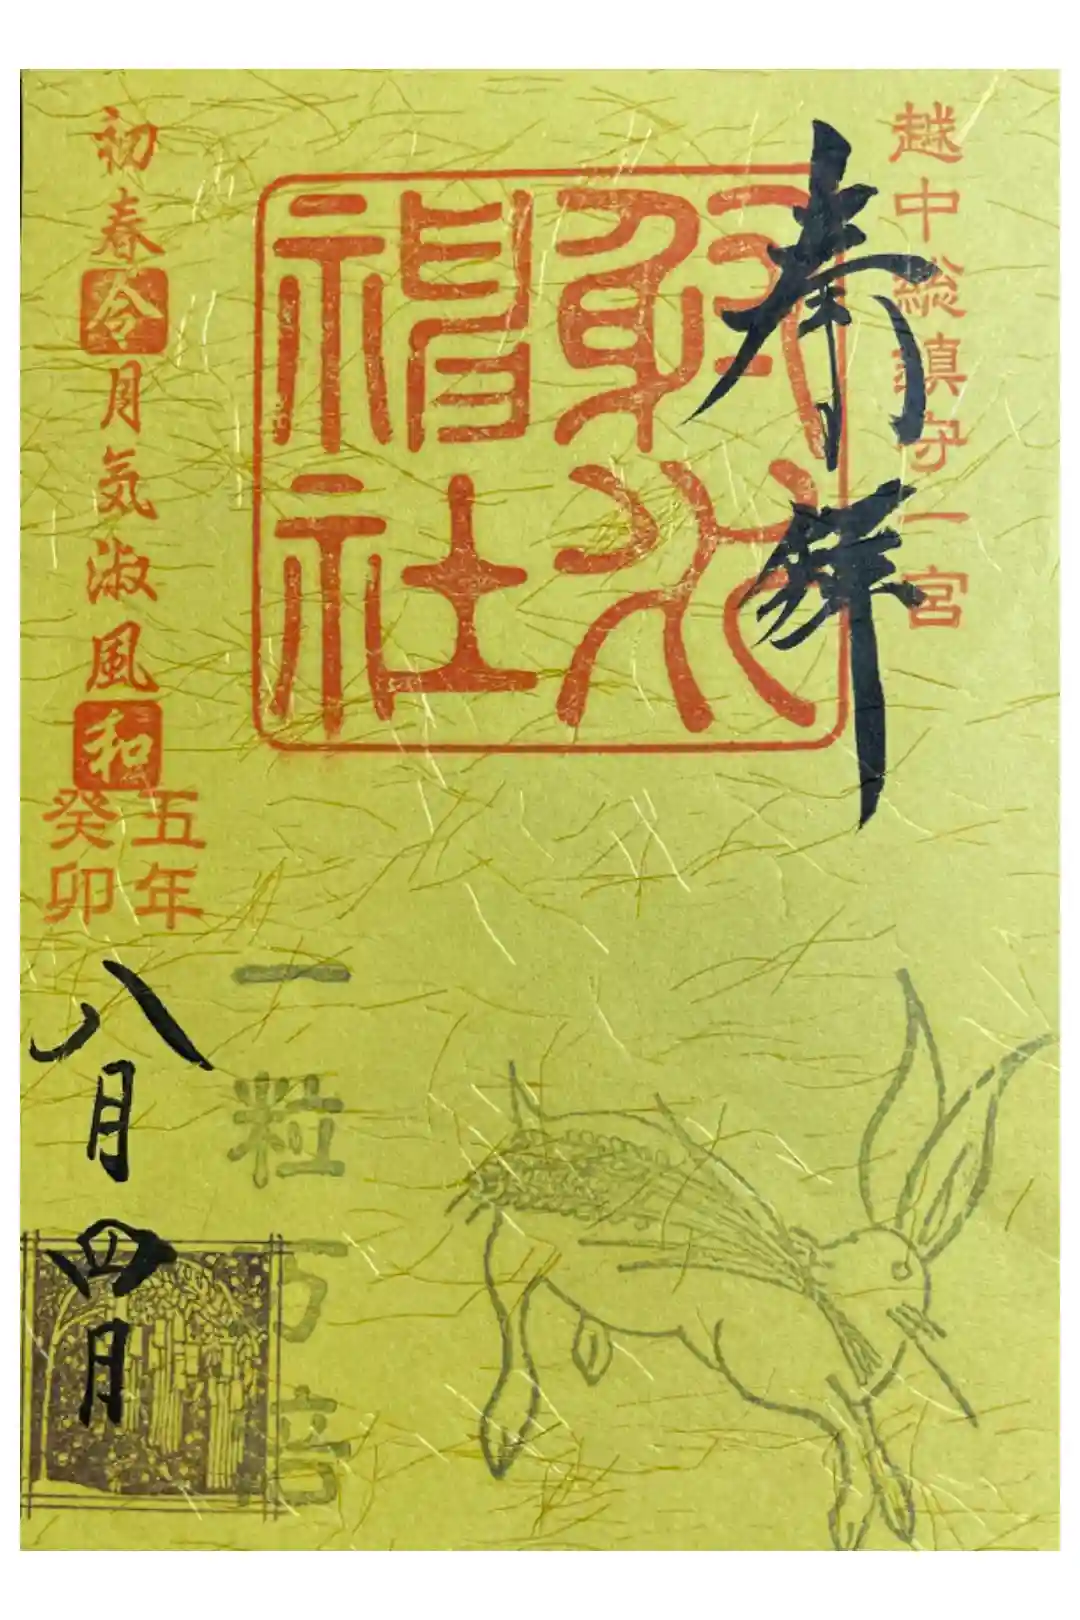 越中総鎮守一宮
奉拝
射水神社
初春令月気淑風和
五年
癸卯
一粒万倍
八月四日